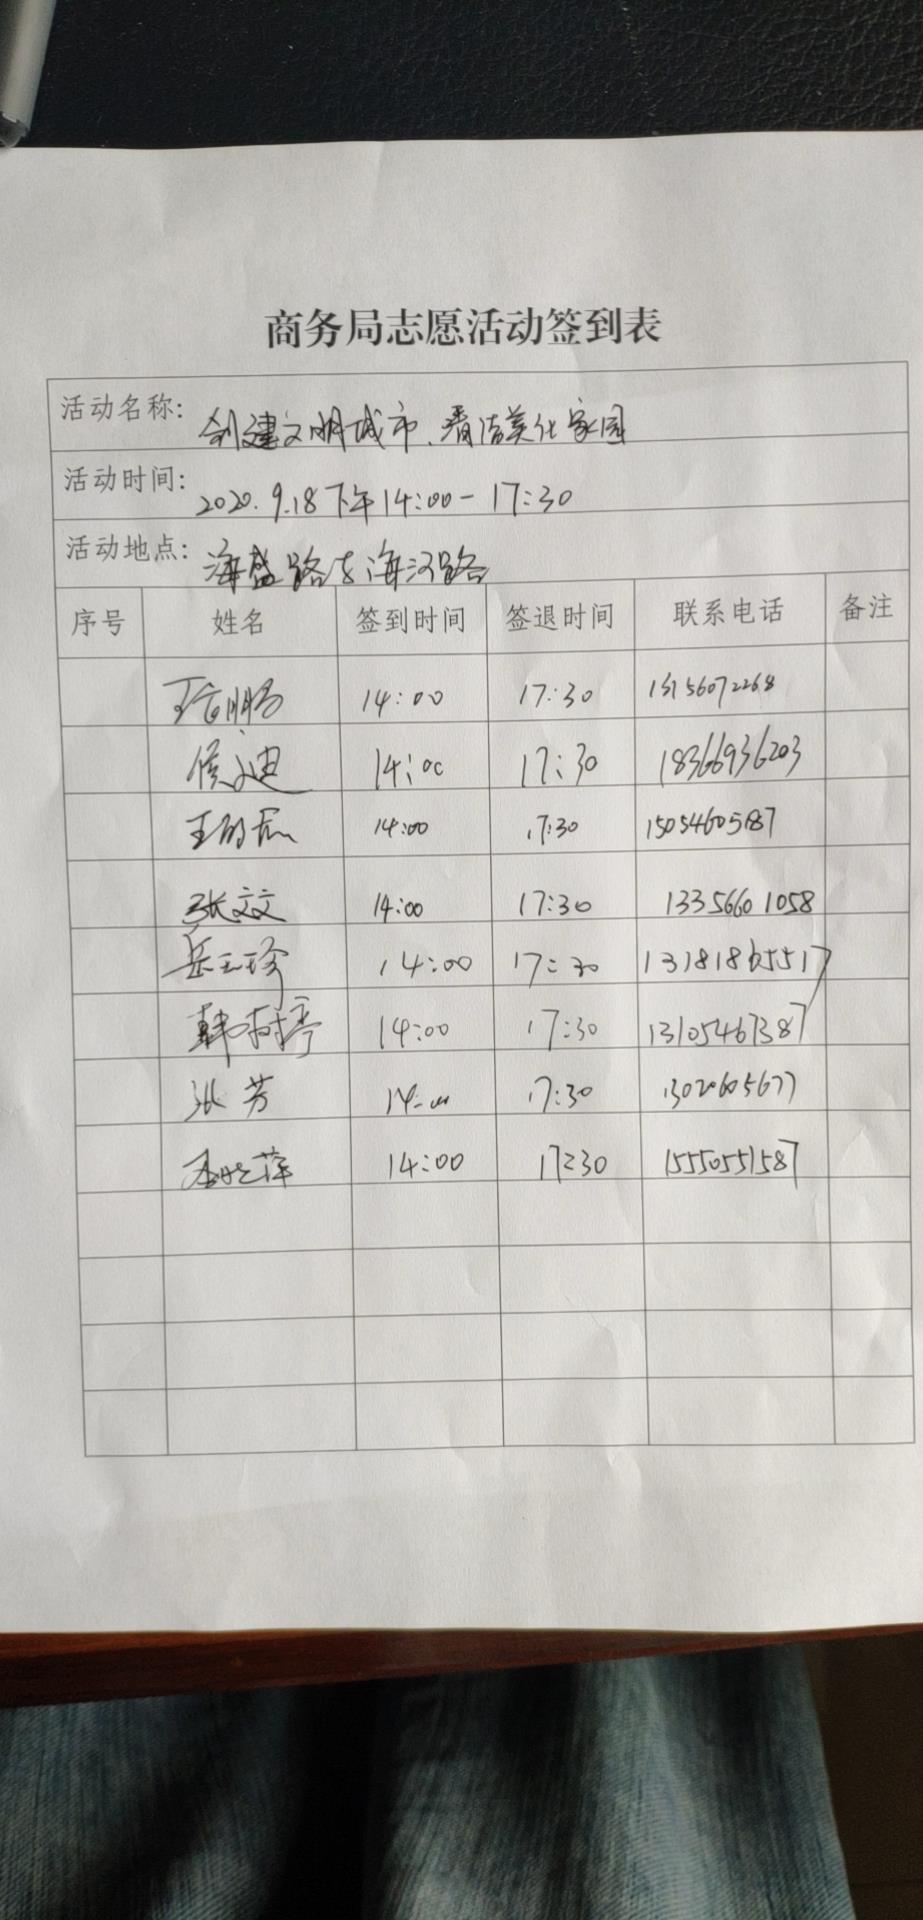 商务局志愿活动签到表
活动名称: 创建文明城市、清洁美化家园
活动时间: 2020.9.18下午14:00-17:30
活动地点: 海盛路与海河路
序号 姓名 签到时间 签退时间 联系电话 备注
14:00 17:30 13156072268
侯迪 14:00 17:30 18366936203
14:00 17:30 15054605187
张文文 14:00 17:30 13356601058
岳玉珍 14:00 17:30 13181865517
韩树婷 14:00 17:30 13105467387
张芳 14:00 17:30
14:00 17:30 15550551587